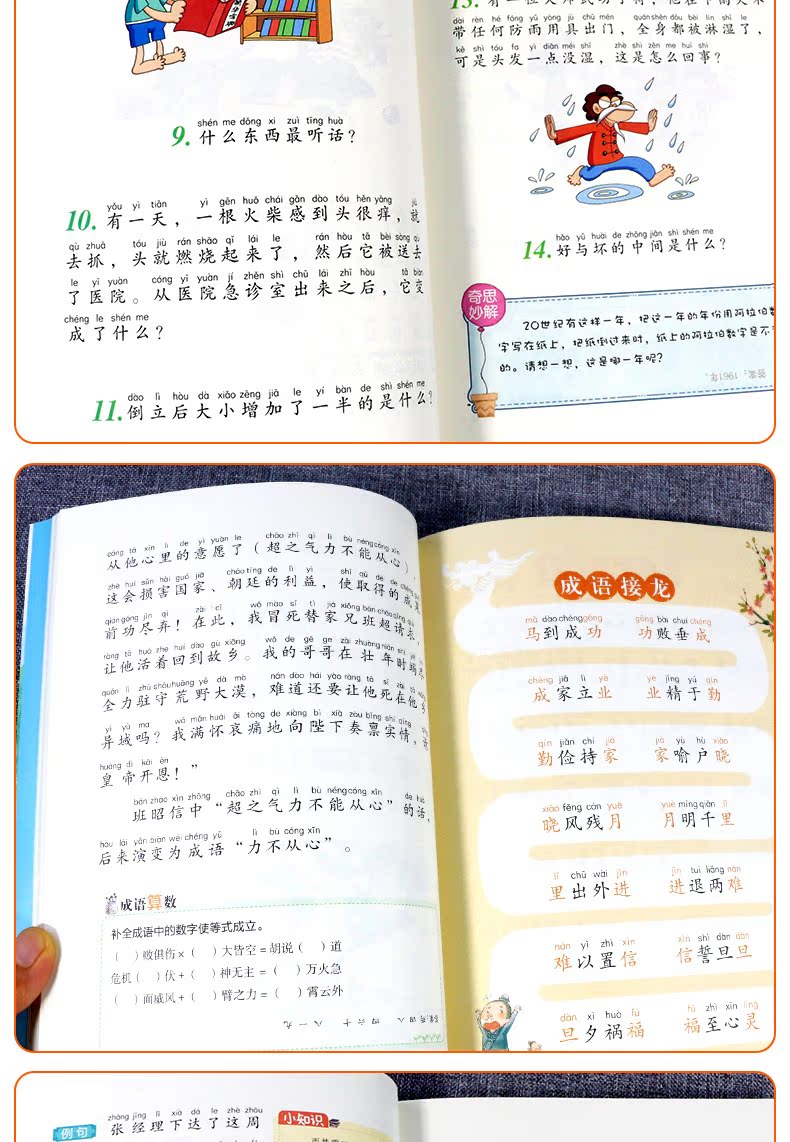 shén me dōng xi zuì tīng huà
9. 什么东西最听话？
yǒu yì tiān yì gēn huǒ chái gǎn dào tóu hěn yǎng jiù
10. 有一天，一根火柴感到头很痒，就
qù zhuā tóu jiù rán shāo qǐ lái le rán hòu tā bèi sòng qù
去抓，头就燃烧起来了，然后它被送去
le yī yuàn cóng yī yuàn jí zhěn shì chū lái zhī hòu tā biàn
了医院。从医院急诊室出来之后，它变
chéng le shén me
成了什么？
dào lì hòu dà xiǎo zēng jiā le yí bàn de shì shén me
11. 倒立后大小增加了一半的是什么？
dài rèn hé fáng yǔ yòng jù chū mén quán shēn dōu bèi lín shī le
带任何防雨用具出门，全身都被淋湿了，
kě shì tóu fa yì diǎn méi shī zhè shì zěn me huí shì
可是头发一点没湿，这是怎么回事？
hǎo yǔ huài de zhōng jiān shì shén me
14. 好与坏的中间是什么？
奇思
妙解
20世纪有这样一年，把这一年的年份用阿拉伯数
字写在纸上，把纸倒过来时，纸上的阿拉伯数字是不
的。请想一想，这是哪一年呢？
答案：1961年。
cóng tā xīn lǐ de yì yuàn le chāo zhī qì lì bù néng cóng xīn
从他心里的意愿了（超之气力不能从心）
zhè huì sǔn hài guó jiā cháo tíng de lì yì shǐ qǔ dé de chéng
这会损害国家、朝廷的利益，使取得的成果
qián gōng jìn qì zài cǐ wǒ mào sǐ tì jiā xiōng bān chāo qǐng qiú
前功尽弃！在此，我冒死替家兄班超请求，
ràng tā huó zhe huí dào gù xiāng wǒ de gē ge zài zhuàng nián shí jié
让他活着回到故乡。我的哥哥在壮年时竭尽
quán lì zhù shǒu huāng yě dà mò nán dào hái yào ràng tā sǐ zài tā xiāng
全力驻守荒野大漠，难道还要让他死在他乡
yì yù ma wǒ mǎn huái āi tòng de xiàng bì xià zòu bǐng shí qíng
异域吗？我满怀哀痛地向陛下奏禀实情，请
huáng dì kāi ēn
皇帝开恩！”
bān zhāo xìn zhōng chāo zhī qì lì bù néng cóng xīn de huà
班昭信中“超之气力不能从心”的话，
hòu lái yǎn biàn wéi chéng yǔ lì bù cóng xīn
后来演变为成语“力不从心”。
成语算数
补全成语中的数字使等式成立。
（ ）败俱伤×（ ）大皆空=胡说（ ）道
危机（ ）伏+（ ）神无主=（ ）万火急
（ ）面威风+（ ）臂之力=（ ）霄云外
成语接龙
mǎ dào chéng gōng gōng bài chuí chéng
马到成功 功败垂成
chéng jiā lì yè yè jīng yú qín
成家立业 业精于勤
qín jiǎn chí jiā jiā yù hù xiǎo
勤俭持家 家喻户晓
xiǎo fēng cán yuè yuè míng qiān lǐ
晓风残月 月明千里
lǐ chū wài jìn jìn tuì liǎng nán
里出外进 进退两难
nán yǐ zhì xìn xìn shì dàn dàn
难以置信 信誓旦旦
dàn xī huò fú fú zhì xīn líng
旦夕祸福 福至心灵
zhāng jīng lǐ xià dá le zhè zhōu
例句 张经理下达了这周
小知识